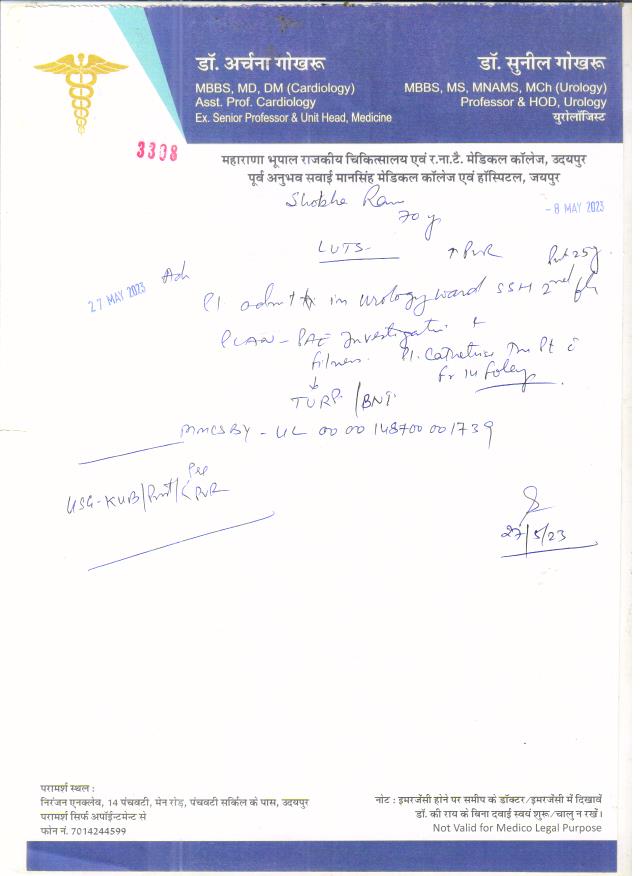 डॉ. अर्चना गोखरू
MBBS, MD, DM (Cardiology)
Asst. Prof. Cardiology
Ex. Senior Professor & Unit Head, Medicine
डॉ. सुनील गोखरू
MBBS, MS, MNAMS, MCh (Urology)
Professor & HOD, Urology
युरोलॉजिस्ट
3308
महाराणा भूपाल राजकीय चिकित्सालय एवं र.ना.टै. मेडिकल कॉलेज, उदयपुर
पूर्व अनुभव सवाई मानसिंह मेडिकल कॉलेज एवं हॉस्पिटल, जयपुर
Shobha Ram
70 y
- 8 MAY 2023
LUTS- ↑ PVR 25g
27 MAY 2023
Adv
Pl. admit in urology ward SSH 2nd
PLAN - PAE Investigation &
fitness. Pl. Catheterise The Pt c̄
Fr 14 Foley
↓
TURP / BNI
MMCSBY - UL 00 00 148700 001739
USG-KUB/Prost/< Pre PVR
27/5/23
परामर्श स्थल :
निरंजन एनक्लेव, 14 पंचवटी, मेन रोड़, पंचवटी सर्किल के पास, उदयपुर
परामर्श सिर्फ अपॉईन्टमेन्ट से
फोन नं. 7014244599
नोट : इमरजेंसी होने पर समीप के डॉक्टर/इमरजेंसी में दिखावें
डॉ. की राय के बिना दवाई स्वयं शुरू/चालु न रखें।
Not Valid for Medico Legal Purpose